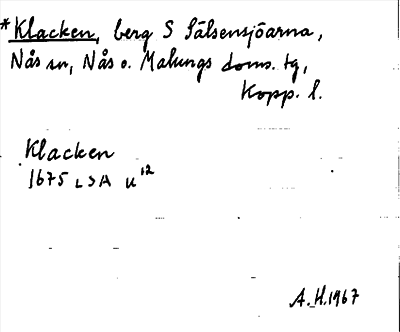 *Klacken, berg S Sälsensjöarna,
Nås sn, Nås o. Malungs doms. tg,
Kopp. l.
Klacken
1675 LSA U 12
A. H. 1967